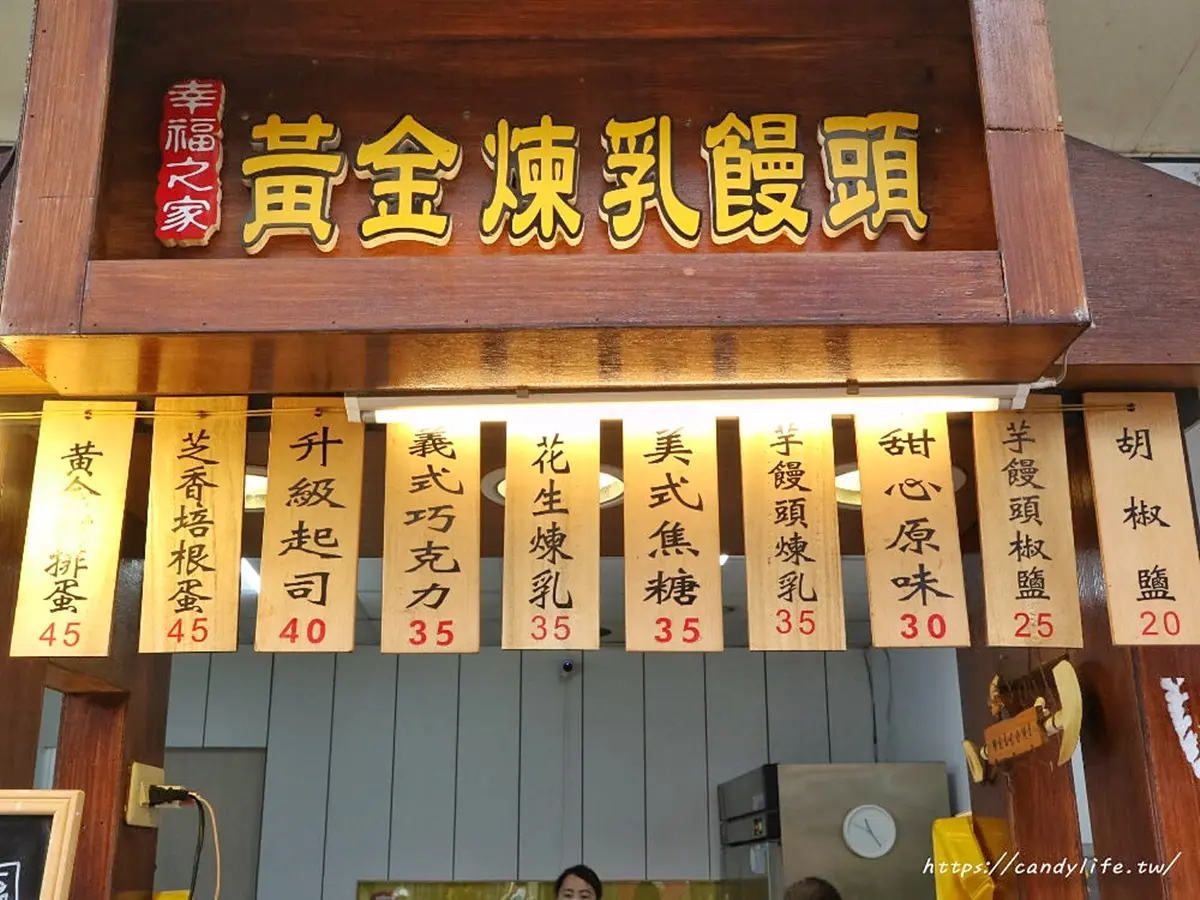 幸福之家
黃金煉乳饅頭
黃金排蛋
45
芝香培根蛋
45
升級起司
40
義式巧克力
35
花生煉乳
35
美式焦糖
35
芋饅頭煉乳
35
甜心原味
30
芋饅頭椒鹽
25
胡椒鹽
20
https://candylife.tw/